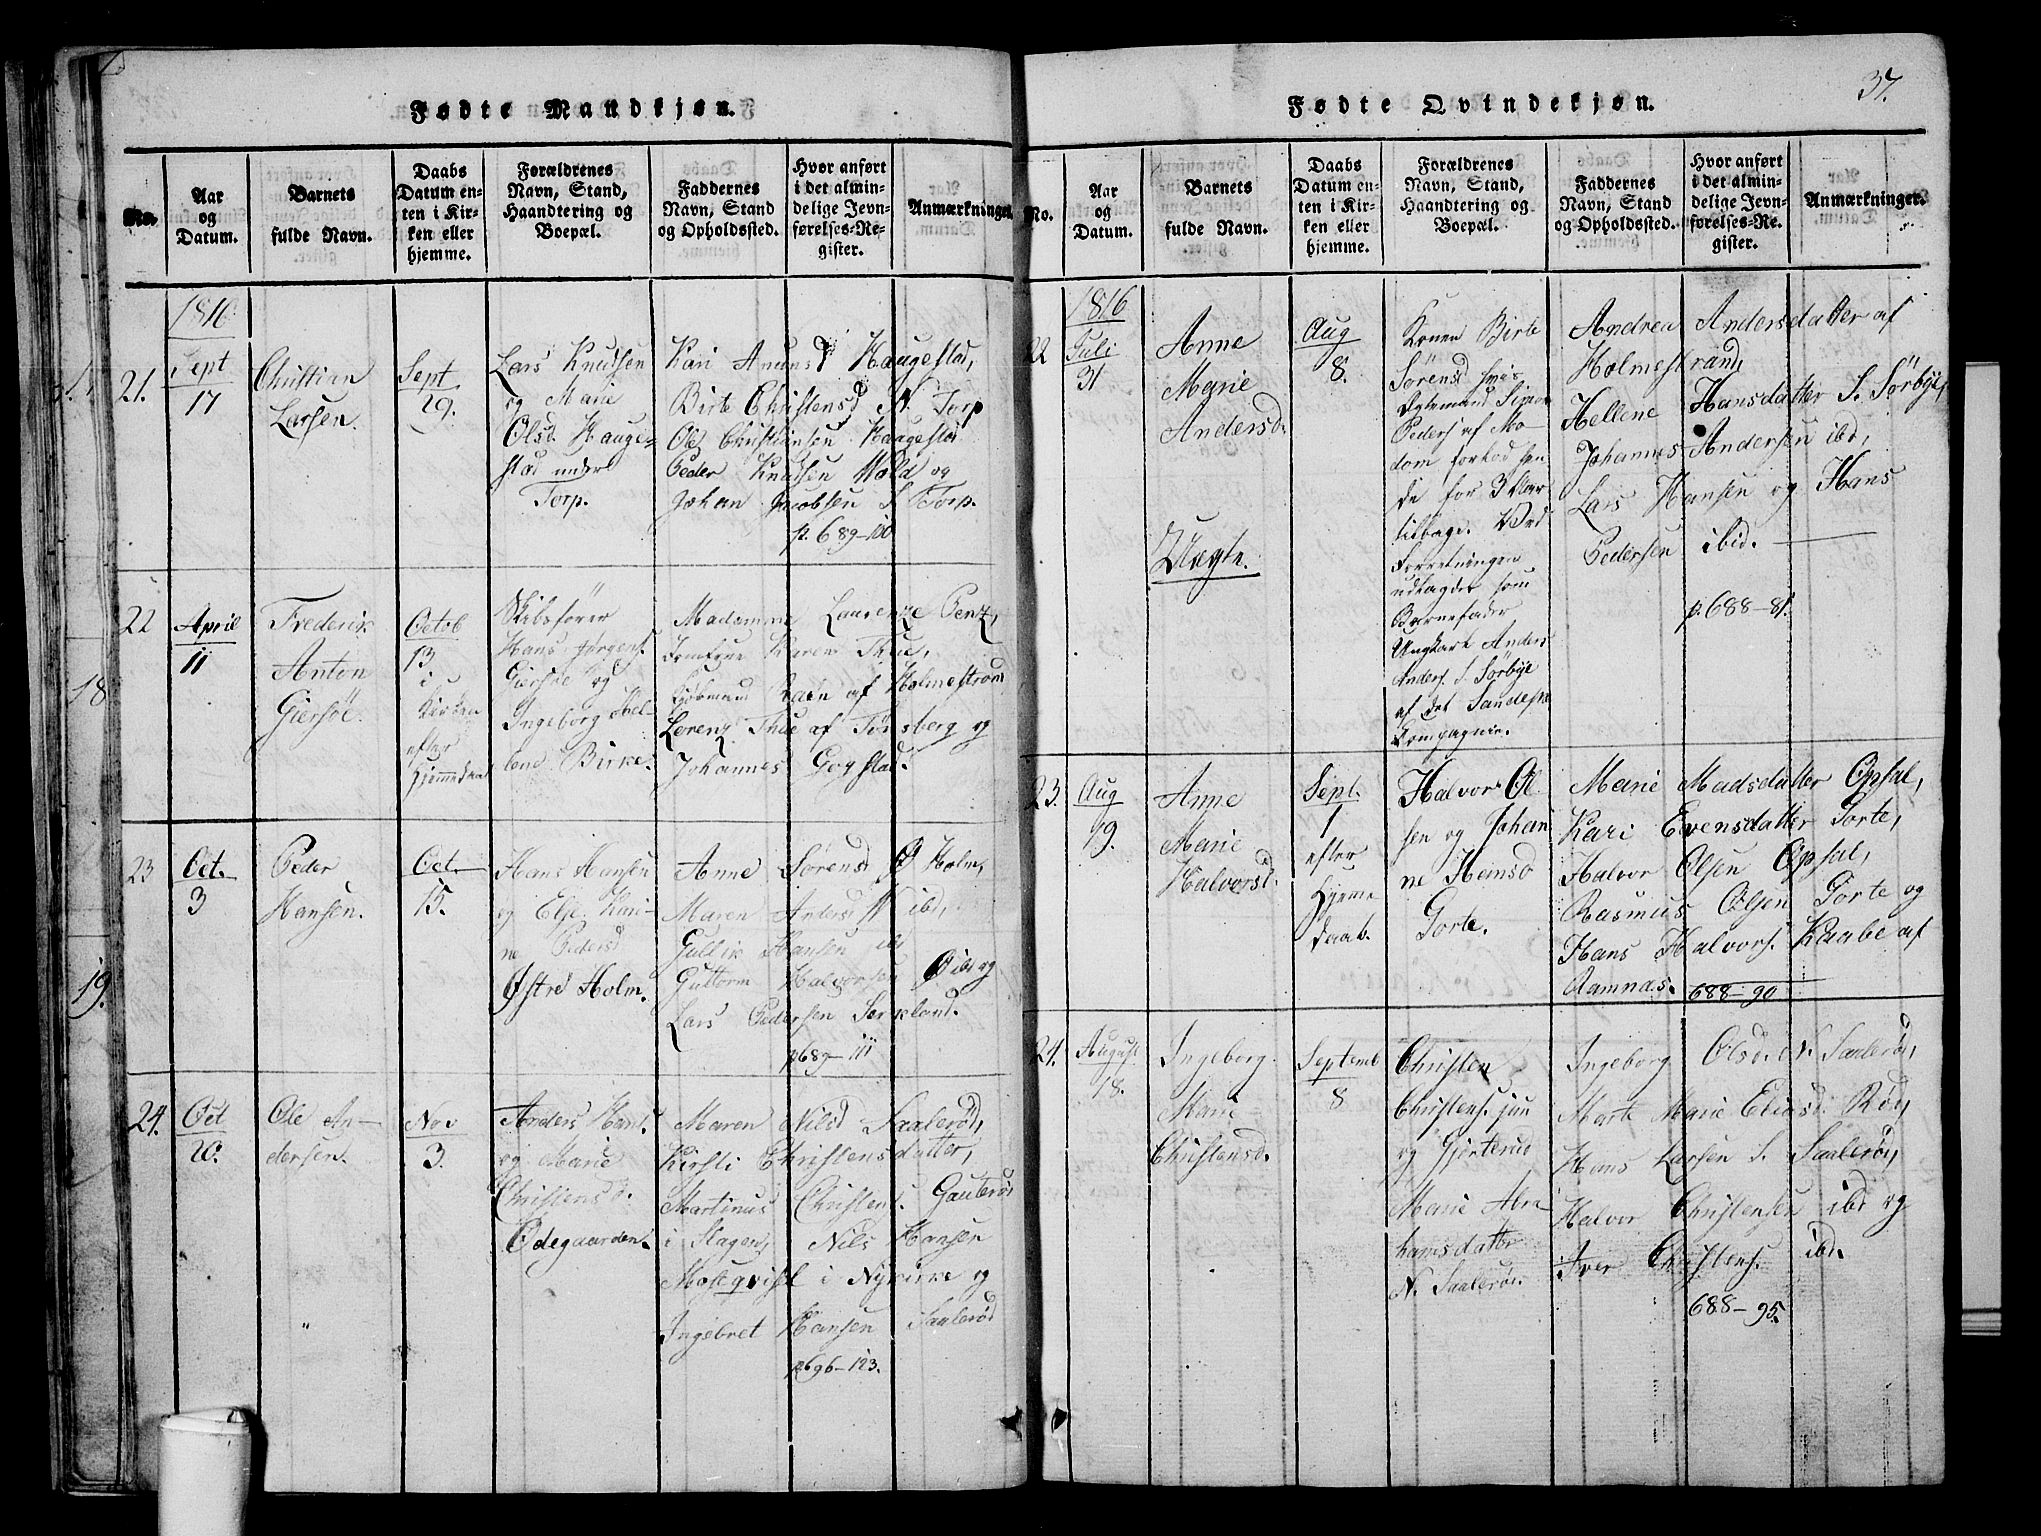 Fødte Mandkjøn.
No.
Aar
og
Datum.
Barnets
fulde Navn.
Daabs
Datum en-
ten i Kir-
ken eller
hjemme.
Forældrenes
Navn, Stand,
Haandtering og
Boepæl.
Faddernes
Navn, Stand
og Opholdssted.
Hvor anført
i det almin-
delige Jevn-
førelses-Re-
gister.
Anmærkninger
1816
21.
Sept
17
Christian
Larsen.
Sept
29.
Lars Knudsen
og Marie
Olsd. Hauge-
stad under
Torp.
Kari Amunsd Haugestad,
Birte Christensd N. Torp
Ole Christiansen Haugestad
Peder Knudsen Wold og
Johan Jacobsen S Torp.
p. 689-100
22
April
11
Frederik
Anton
Giersöe.
Octob
13.
i
Kirken
efter
Hjemmedaab
Skibsfører
Hans Jørgens.
Giersöe og
Ingeborg Hel-
lene Birke.
Madamme Laurenze Penz,
Jomfrue Karen Thue,
Kjøbmand Raen af Holmestrand
Lorenz Thue af Tønsberg og
Johannes Gogstad.
23
Oct.
3
Peder
Hansen.
Oct.
15.
Hans Hansen
og Else Kari-
ne Pedersd
Østre Holm.
Anne Sørensd Ø Holm,
Maren Andersd N ibd,
Gullik Hansen ibd
Guttorm Halvorsen Ø ibd og
Lars Pedersen Sørkeland.
p689-111
24.
Oct
20.
Ole An-
dersen.
Nov
3.
Anders Hans.
og Marie
Christensd.
Ødegaarden.
Maren Nilsd Saalerød,
Kirsti Christensdatter,
Martinus Christens. Gauterød
i Slagen, Nils Hansen
Moseqvist i Nykirke og
Ingebret Hansen Saalerød
p696-123.
18
19.
Fødte Qvindekjøn.
37.
No.
Aar
og
Datum.
Barnets
fulde Navn.
Daabs
Datum en-
ten i Kir-
ken eller
hjemme.
Forældrenes
Navn, Stand,
Haandtering og
Boepæl.
Faddernes
Navn, Stand
og Opholdssted.
Hvor anført
i det almin-
delige Jevn-
førelses-Re-
gister.
Anmærkninger.
1816
22
Juli
31
Anne
Marie
Andersd.
Uægte.
Aug
8.
Konen Birte
Sørensd hvis
Egtemand Simon
Peders af Mo-
dom forlod hen
de for 3 Aar
tilbage. Ved
Forretningen
udlagdes som
Barnefader
Ungkarl Anders
Anders. S. Sörbye
af det Sandeske
Compagnie.
Andrea Andersdatter af
Holmestrand,
Hellene Hansdatter S. Sörbye,
Johannes Andersen ibd,
Lars Hansen og Hans
Pedersen ibid.
p. 688-81.
23.
Aug
19.
Anne
Marie
Halvorsd.
Sept.
1
efter
Hjemme
daab.
Halvor Ol
sen og Johan
ne Hemsd
Gorte.
Marie Madsdatter Opsal,
Kari Evensdatter Gorte,
Halvor Olsen Opsal,
Rasmus Olsen Gorte og
Hans Halvors. Raabe af
Ramnæs.
688-90
24.
August
18.
Ingeborg
Marie
Christensd.
Septemb
8
Christen
Christens. jun
og Gjörterud
Marie Abra
hamsdatter
N. Saalerøe.
Ingeborg Olsd. N. Saalerøe,
Marte Marie Eliasd. Röe,
Hans Larsen S. Saalerøe,
Halvor Christensen ibd og
Iver Christens. ibd.
688-95.